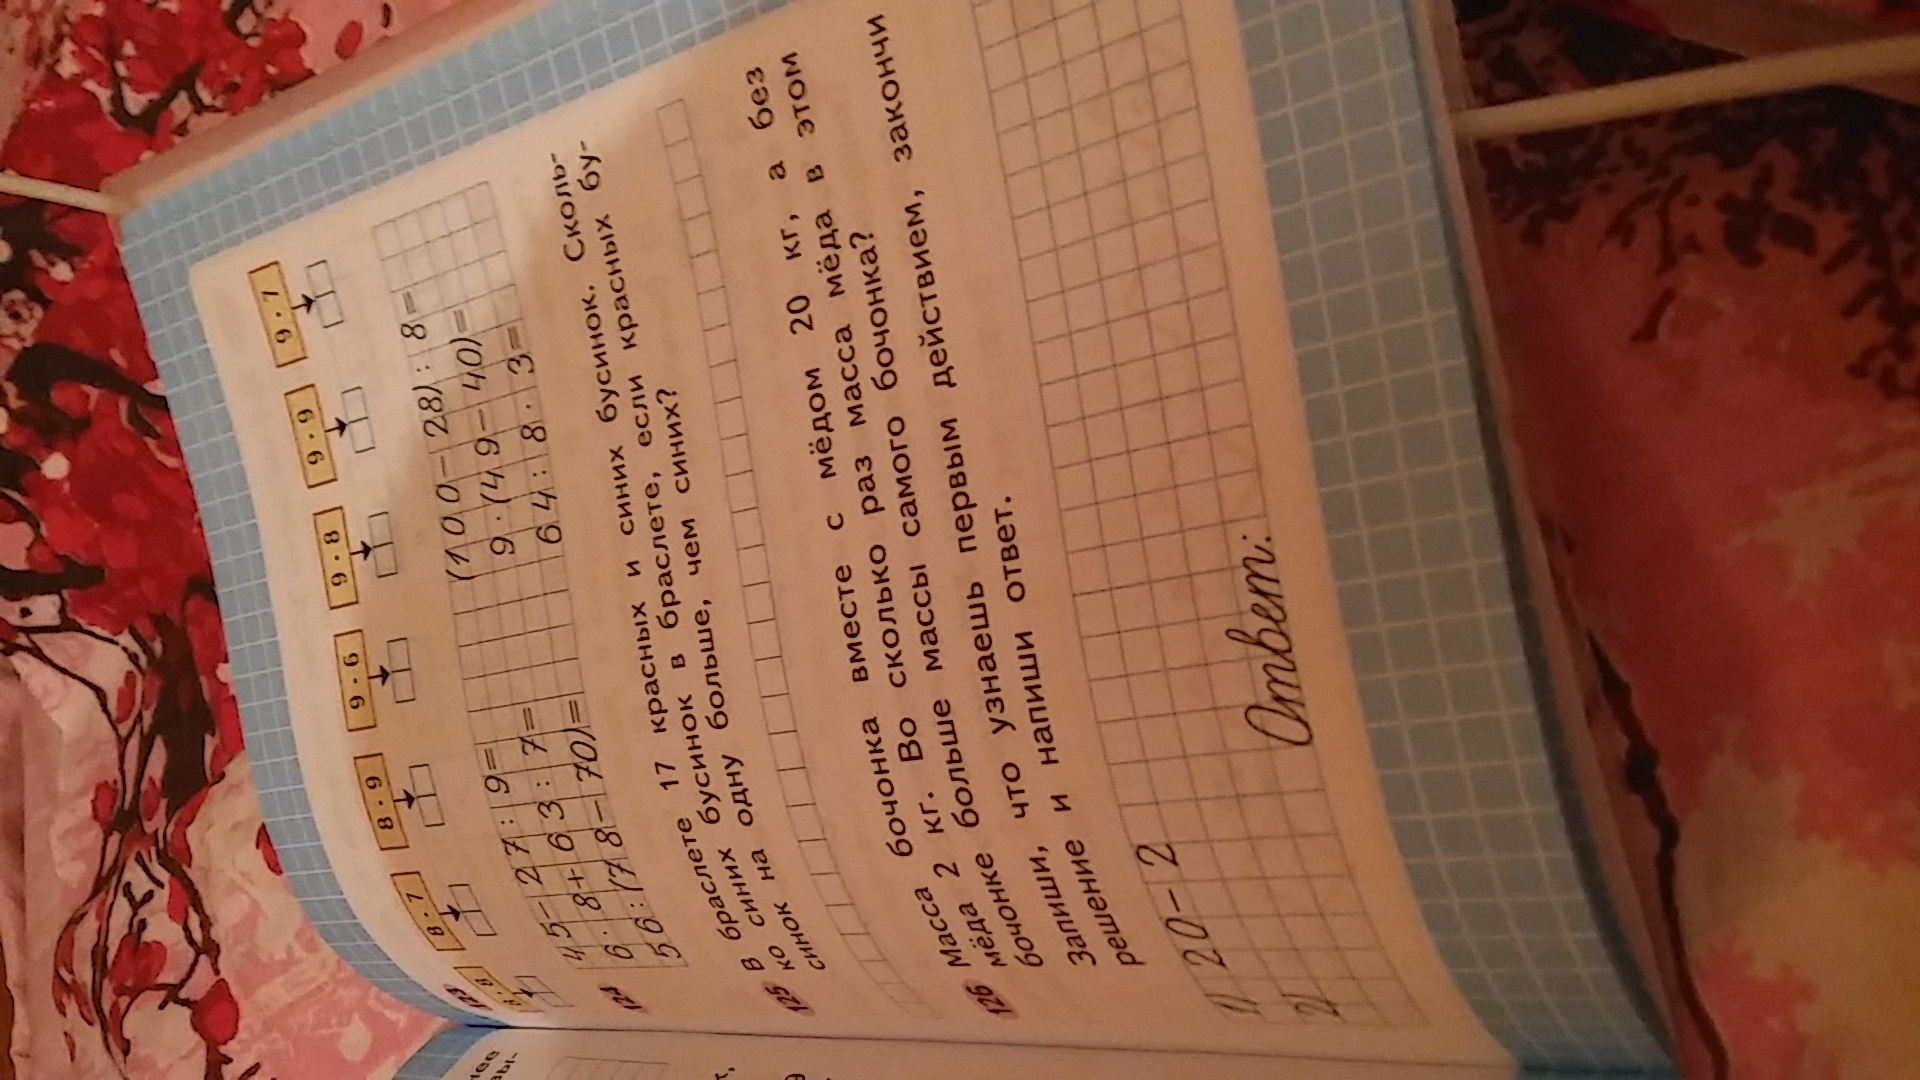 123
8·8 8·7 8·9 9·6 9·8 9·9 9·7
124 45-27:9= (100-28):8=
6·8+63:7= 9·(49-40)=
56:(78-70)= 64:8·3=
125 В браслете 17 красных и синих бусинок. Сколь-
ко синих бусинок в браслете, если красных бу-
синок на одну больше, чем синих?
126 Масса бочонка вместе с мёдом 20 кг, а без
мёда 2 кг. Во сколько раз масса мёда в этом
бочонке больше массы самого бочонка?
Запиши, что узнаешь первым действием, закончи
решение и напиши ответ.
1) 20-2
2)
Ответ: